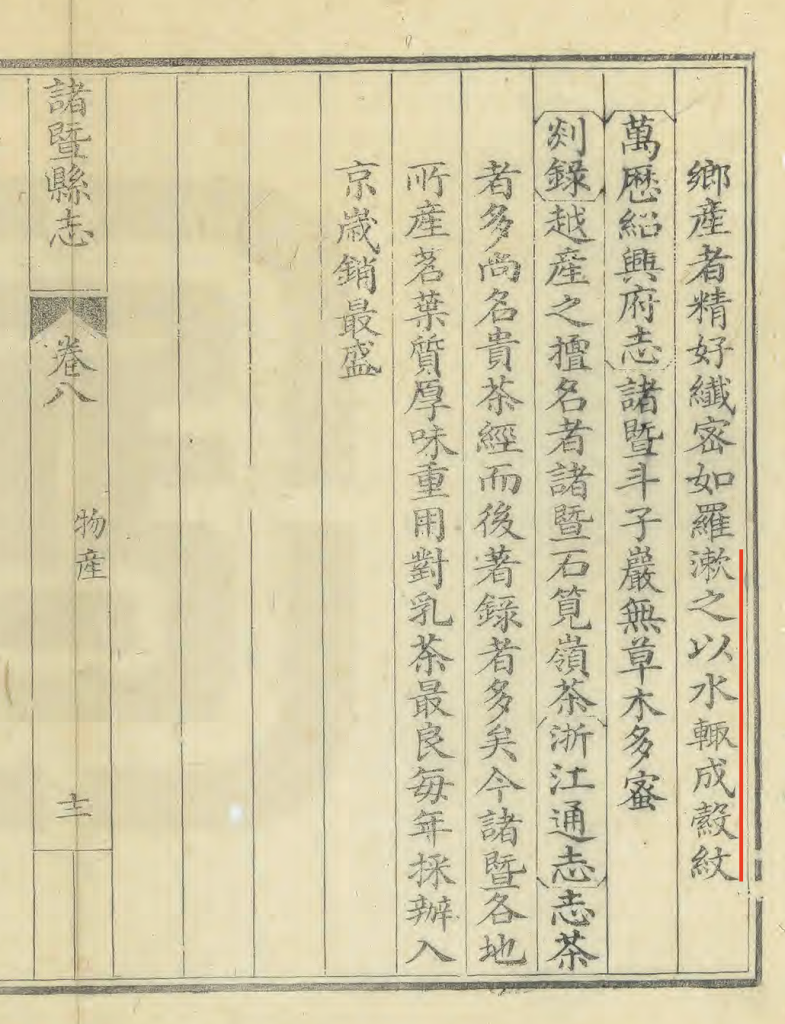 鄉産者精好纖密如羅漱之以水輙成縠紋
萬歷紹興府志諸暨斗子巖無草木多蜜
剡錄越産之擅名者諸暨石筧嶺茶浙江通志志茶
者多尚名貴茶經而後著録者多矣今諸暨各地
所産茗葉質厚味重用對乳茶最良每年採辦入
京歲銷最盛
諸暨縣志
卷八
物産
十二